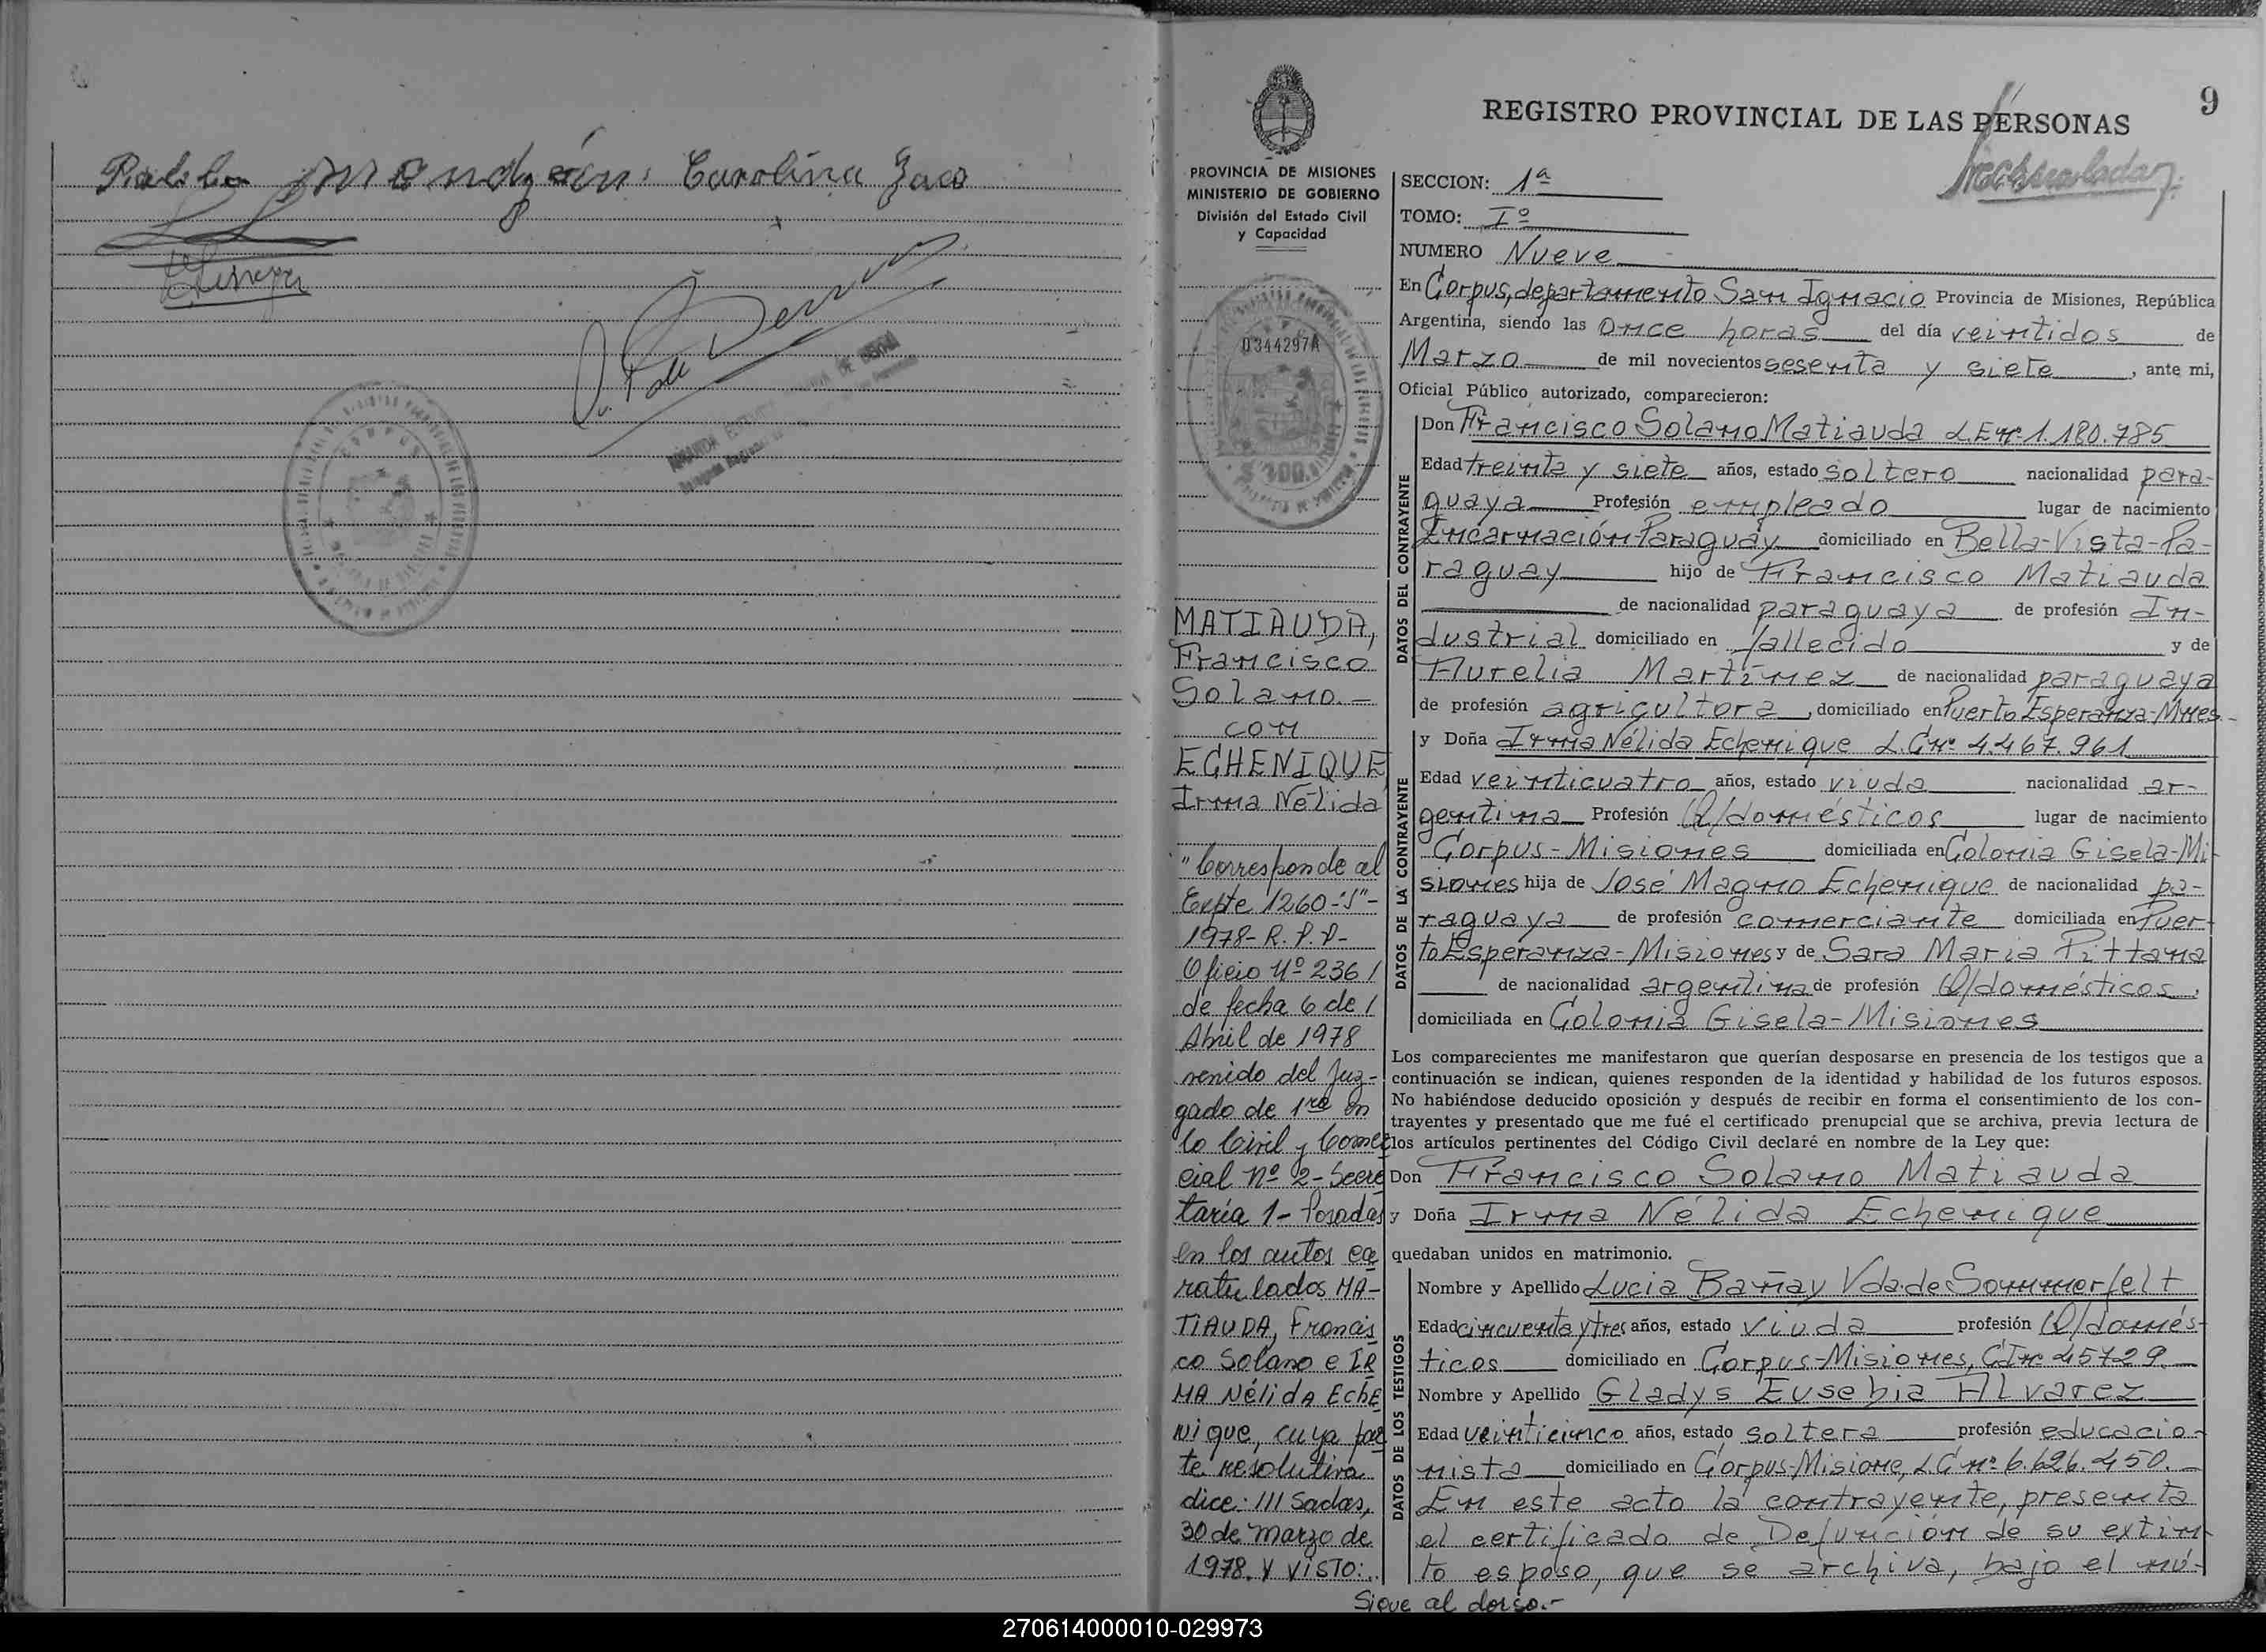 Carolina Zaco
9
REGISTRO PROVINCIAL DE LAS PERSONAS
PROVINCIA DE MISIONES
MINISTERIO DE GOBIERNO
División del Estado Civil
y Capacidad
0344297A
SECCION: 1ª
TOMO: Iº
NUMERO Nueve
En Corpus, departamento San Ignacio Provincia de Misiones, República
Argentina, siendo las once horas del día veintidos de
Marzo de mil novecientos sesenta y siete, ante mi,
Oficial Público autorizado, comparecieron:
DATOS DEL CONTRAYENTE
Don Francisco Solano Matiauda L.E nº 1.180.785
Edad treinta y siete años, estado soltero nacionalidad para-
guaya Profesión empleado lugar de nacimiento
Encarnación-Paraguay domiciliado en Bella-Vista-Pa-
raguay hijo de Francisco Matiauda
de nacionalidad paraguaya de profesión In-
dustrial domiciliado en fallecido y de
Aurelia Martínez de nacionalidad paraguaya
de profesión agricultora, domiciliado en Puerto Esperanza-Mnes-
DATOS DE LA CONTRAYENTE
y Doña Irma Nélida Echenique L.C nº 4.467.961
Edad veinticuatro años, estado viuda nacionalidad ar-
gentina Profesión Q/domésticos lugar de nacimiento
Corpus-Misiones domiciliada en Colonia Gisela-Mi-
siones hija de José Magno Echenique de nacionalidad pa-
raguaya de profesión comerciante domiciliada en Puer-
to Esperanza-Misiones y de Sara Maria Pittana
de nacionalidad argentina de profesión Q/domésticos,
domiciliada en Colonia Gisela-Misiones
Los comparecientes me manifestaron que querían desposarse en presencia de los testigos que a
continuación se indican, quienes responden de la identidad y habilidad de los futuros esposos.
No habiéndose deducido oposición y después de recibir en forma el consentimiento de los con-
trayentes y presentado que me fué el certificado prenupcial que se archiva, previa lectura de
los artículos pertinentes del Código Civil declaré en nombre de la Ley que:
Don Francisco Solano Matiauda
y Doña Irma Nélida Echenique
quedaban unidos en matrimonio.
DATOS DE LOS TESTIGOS
Nombre y Apellido Lucia Bañay Vda. de Sommerfelt
Edad cincuenta y tres años, estado viuda profesión Q/domés-
ticos domiciliado en Corpus-Misiones, C.I nº 45729.
Nombre y Apellido Gladys Eusebia Alvarez
Edad veinticinco años, estado soltera profesión educacio-
nista domiciliado en Corpus-Misione, L.C nº 6.626.450.
En este acto la contrayente, presenta
el certificado de Defunción de su extin-
to esposo, que se archiva, bajo el nú-
MATIAUDA,
Francisco
Solano.-
con
ECHENIQUE
Irma Nélida
"Corresponde al
Expte 1260-"S"-
1978- R.P.P-
Oficio Nº 236/
de fecha 6 de/
Abril de 1978
venido del Juz-
gado de 1ra en
lo Civil y Comer
cial Nº 2- Secre
taría 1- Posadas
en los autos ca
ratulados MA-
TIAUDA, Francis
co Solano e IR
MA Nélida Eche
nique, cuya par
te resolutiva
dice: ///sadas,
30 de marzo de
1978. Y VISTO:..
Sigue al dorso.-
270614000010-029973